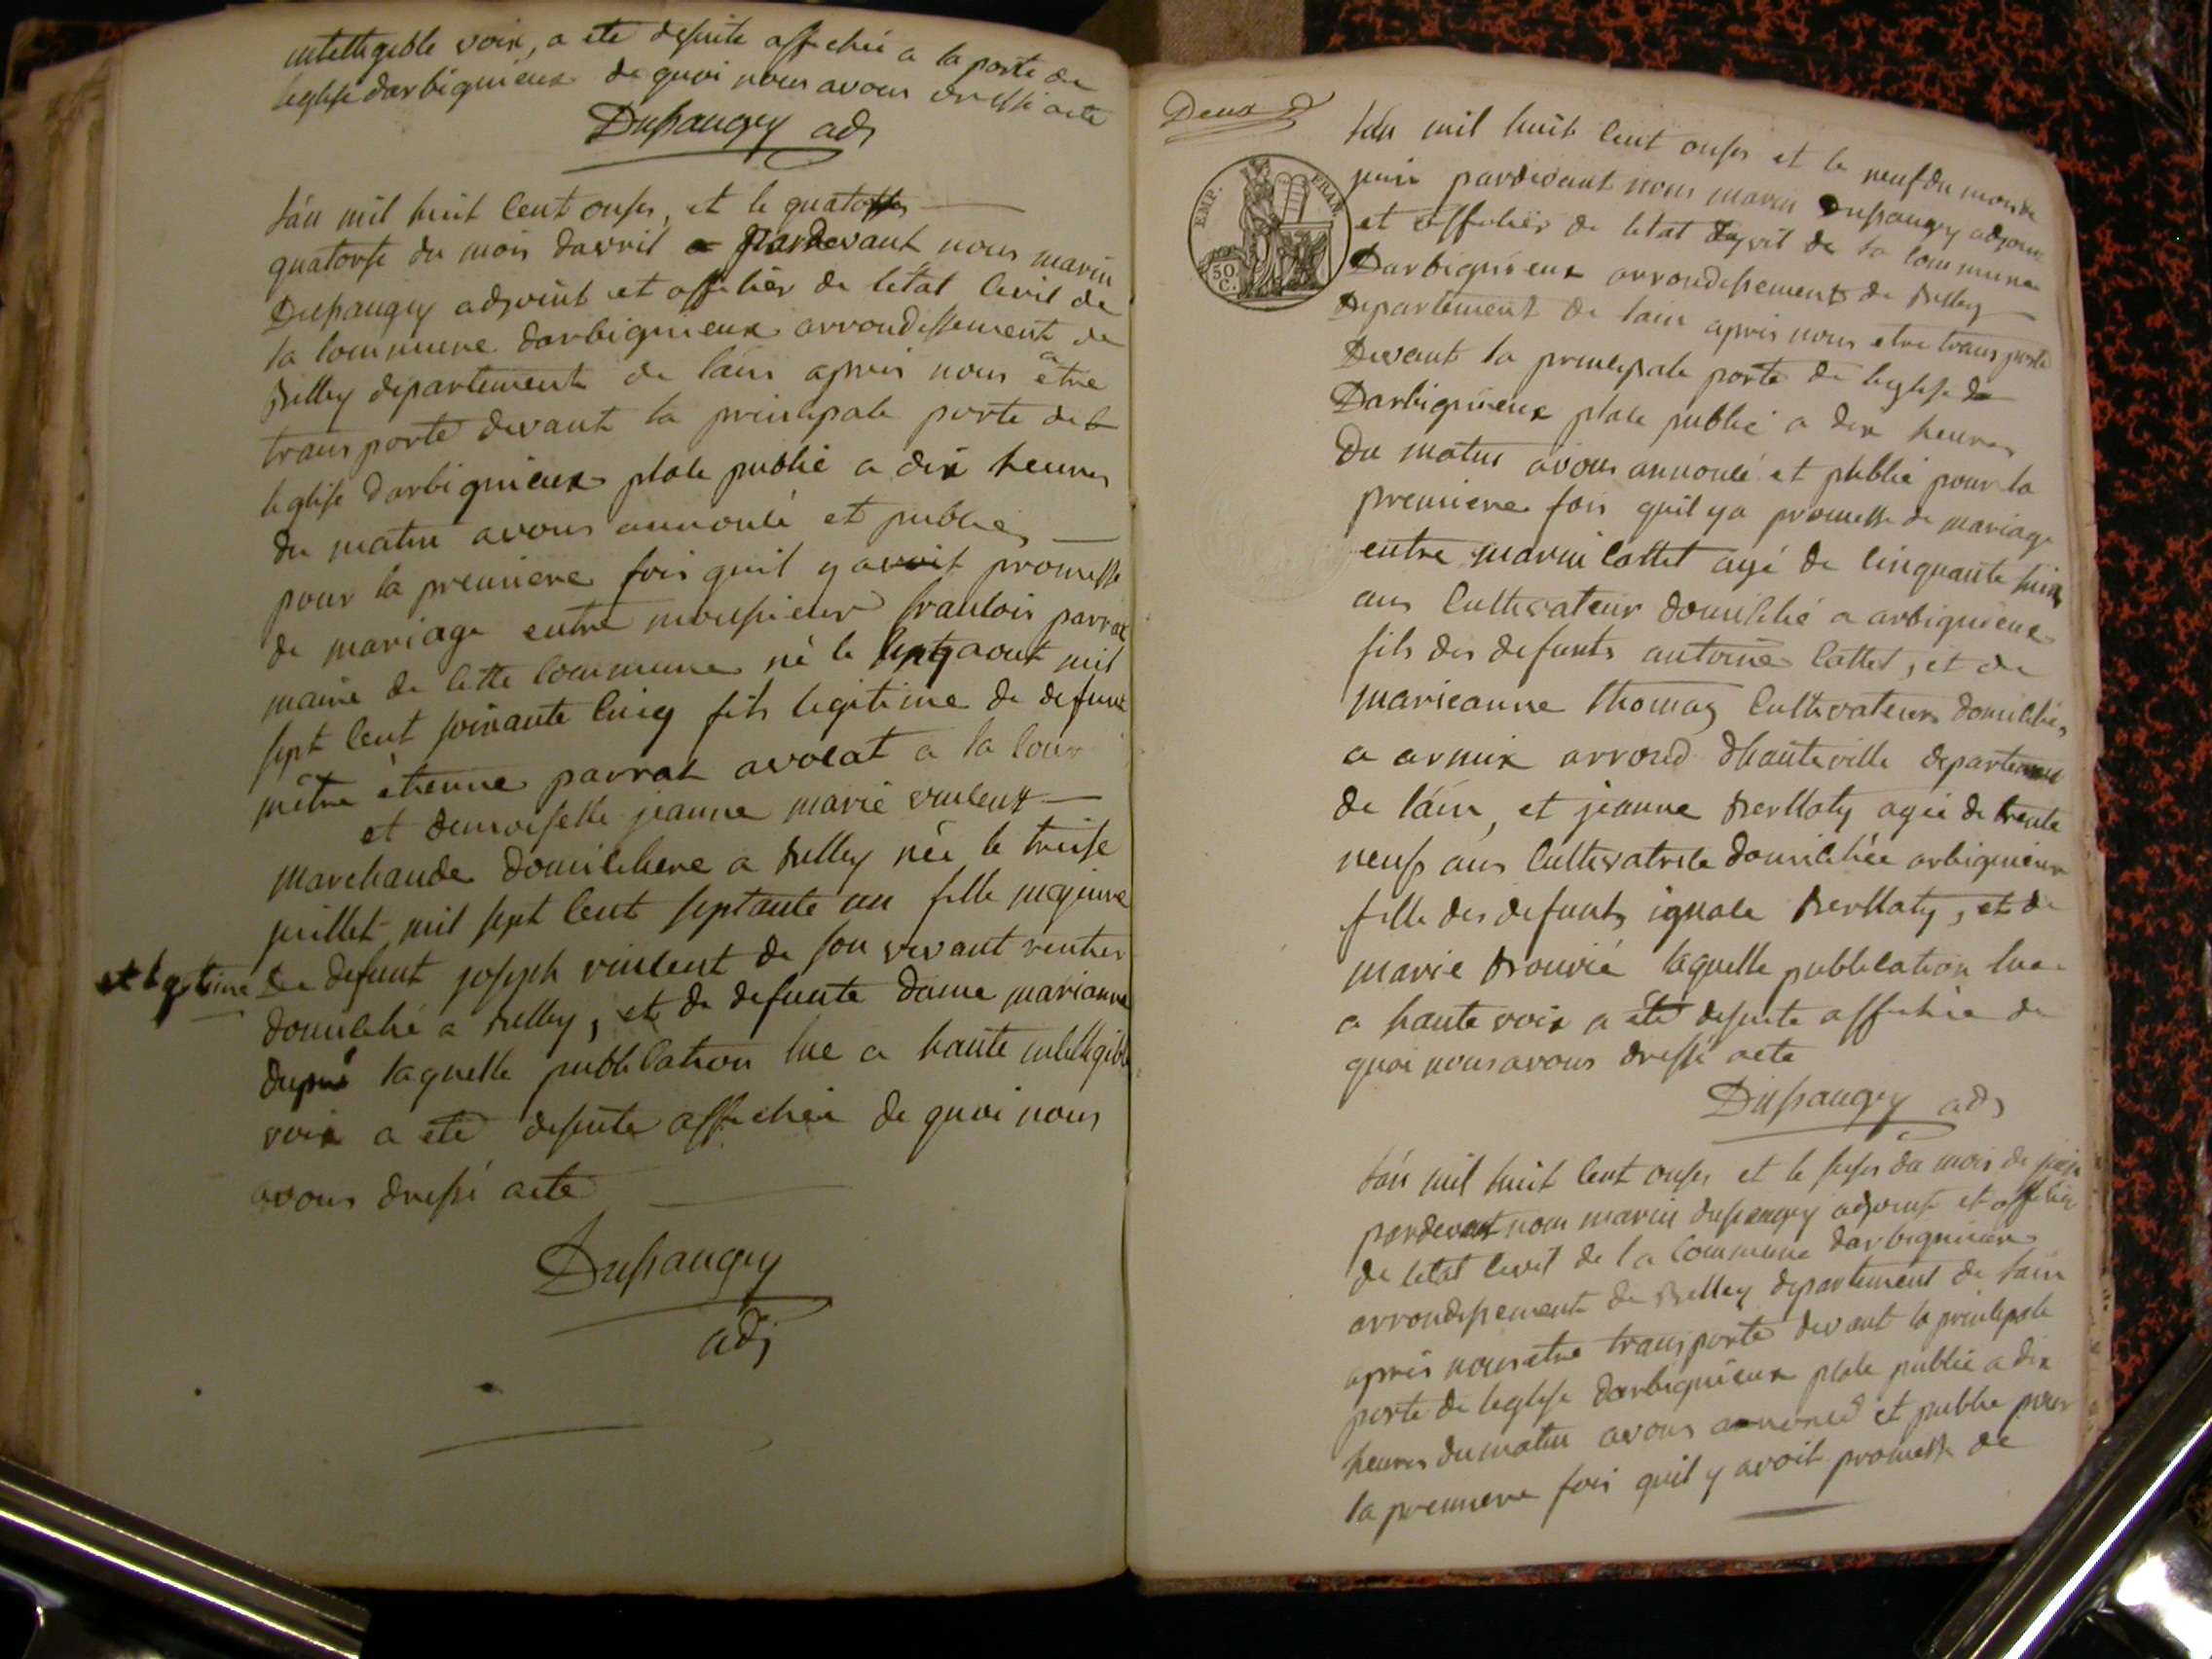 intelligible voix, a eté desuite affichée a la porte de
leglise darbignieux de quoi nous avons dressé acte
Dupaugey adj
Lán mil huit Cent onse, et le quatorse
quatorse du mois davril a pardevant nous marin
Dupaugey adjoint et officier de létat Civil de
la Commune darbignieux arrondissement de
Belley departement de lain après nous être
transporté devant la principale porte de l
leglise darbignieux place public a dix heures
du matin avons annoncé et publié
pour la premiere fois quil y avoit promesse
de mariage entre monsieur francois parrat
maire de Cette Commune né le sept aout mil
sept Cent soixante Cinq fils legitime de defunt
mètre étienne parrat avocat a la Cour
et demoiselle jeanne marie vincent
marchande domiciliere a Belley née le treise
juillet mil sept Cent septante un fille majeure
et legitime de defunt joseph vincent de son vivant rentier
domicilié a Belley, et de defunte dame marianne
dupré laquelle publication lue a haute intelligible
voix a eté desuite affichée de quoi nous
avons dressé acte
Dupaugey
adj
Deux
EMP. FRAN.
50 C.
Lán mil huit Cent onse et le neuf du mois de
juin pardevant nous marin Dupaugey adjoint
et officier de létat Cyvil de la Commune
Darbignieux arrondissement de Belley
departement de lain après nous etre transporté
Devant la principale porte de leglise de
Darbignieux place public a dix heures
Du matin avons annoncé et publié pour la
premiere fois quil y a promesse de mariage
entre marin Cottet agé de Cinquante huit
ans Cultivateur domicilié a arbignieux
fils des defunts antoine Cottet, et de
marieanne thomas Cultivateurs domiciliés
a armix arrond dhauteville departement
de láin, et jeanne Berllaty agée de trente
neuf ans Cultivatrice domiciliée arbignieux
fille des defunts ignace Berllaty, et de
marie Brouvié laquelle publication lue
a haute voix a eté desuite affichée de
quoi nous avons dressé acte
Dupaugey adj
Lán mil huit Cent onse et le seise du mois de juin
pardevant nous marin dupaugey adjoint et officier
de létat Civil de la Commune darbignieux
arrondissement de Belley departement de lain
après nous etre transporté devant la principale
porte de leglise darbignieux place public a dix
heures du matin avons annoncé et publié pour
la premiere fois quil y avoit promesse de